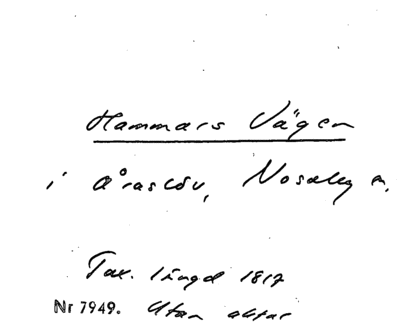 Hammars Vägen
i Åraslöv, Nosaby s.
Tax. längd 1817
Nr 7949. Utan aktar